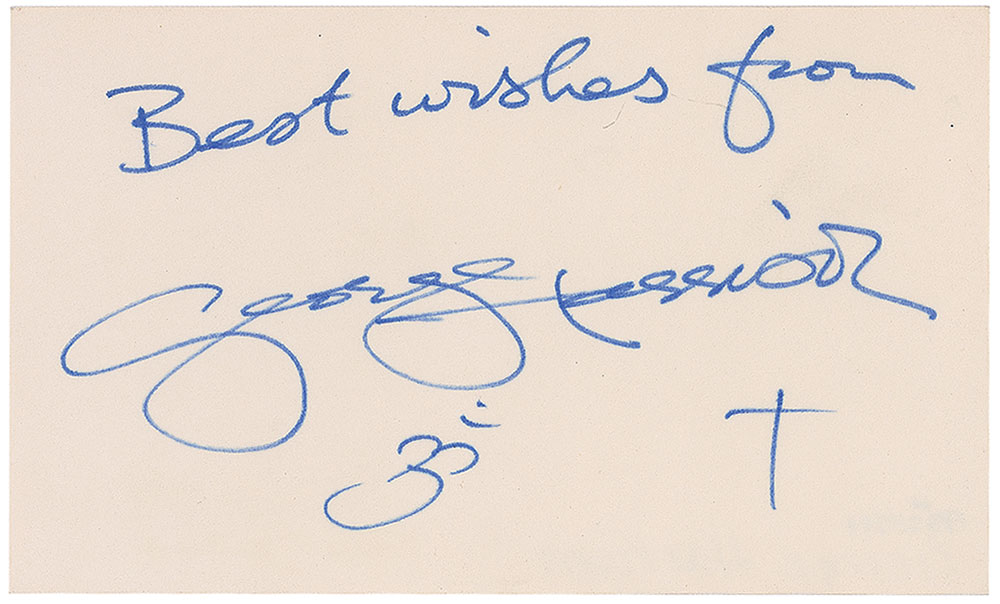 Best wishes from
George Harrison
ॐ †